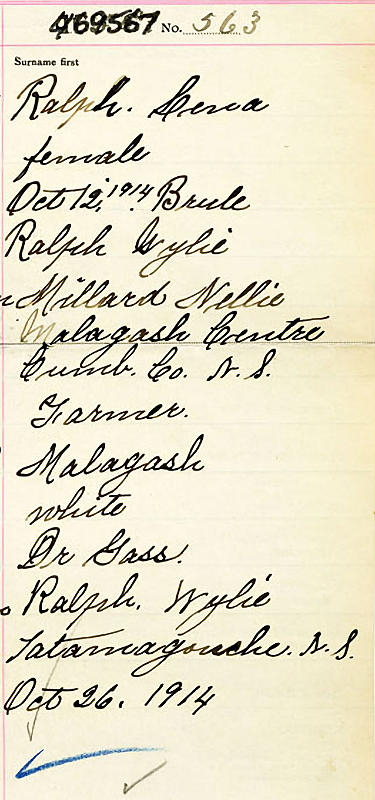 469567 No. 563
Surname first
Ralph. Lena
female
Oct 12, 1914 Brule
Ralph Wylie
Millard Nellie
Malagash Centre
Cumb. Co. N. S.
Farmer.
Malagash
white
Dr Gass.
Ralph. Wylie
Tatamagouche. N. S.
Oct 26. 1914